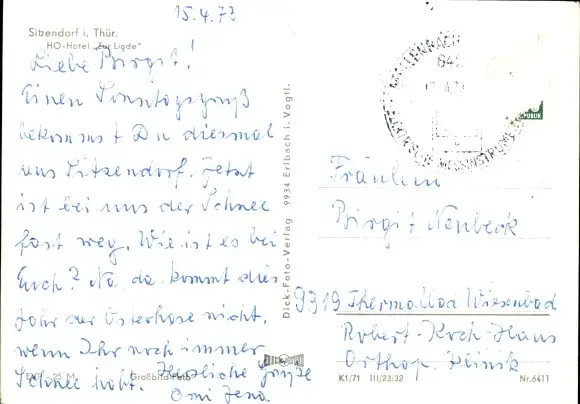 15.4.73
Sitzendorf i. Thür.
HO-Hotel „Zur Linde"
Liebe Birgit!
Einen Sonntagsgruß
bekommst Du diesmal
aus Sitzendorf. Jetzt
ist bei uns der Schnee
fast weg. Wie ist es bei
Euch? Na, da kommt dies
Jahr der Osterhase nicht,
wenn Ihr noch immer
Schnee habt. Herzliche Grüße
Omi Jena
EVP -,25 M
Großbild-Foto
Dick-Foto-Verlag 9934 Erlbach i. Vogtl.
642
ELEKTRISCHE MESSINSTRUMENTE
Fräulein
Birgit Neubeck
9319 Thermalbad Wiesenbad
Robert-Koch-Haus
Orthop. Klinik
K1/71 III/23/32 Nr. 6411